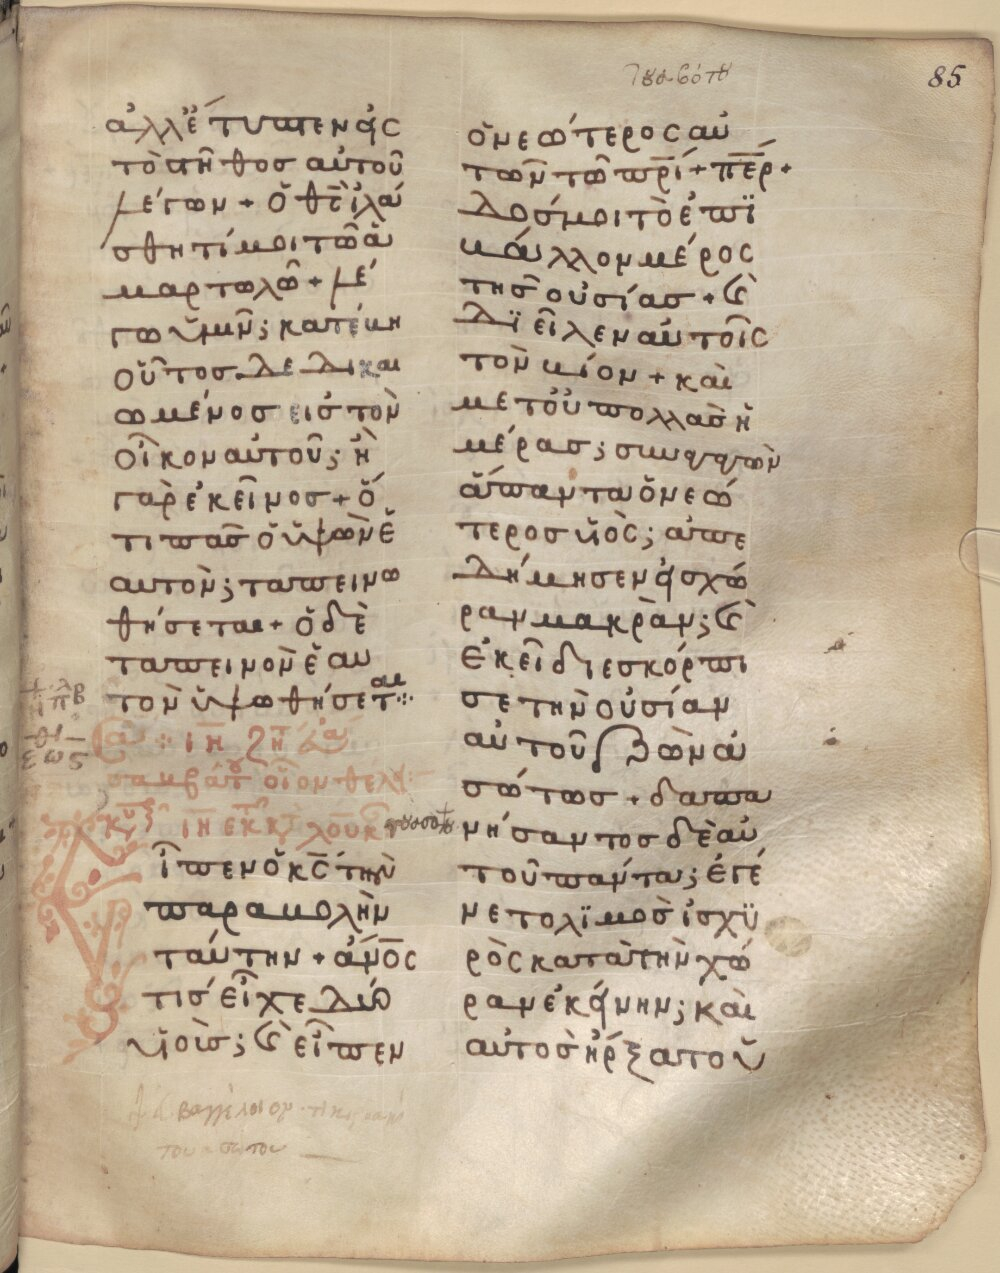 85
ἀλλ' ἔτυπτεν εἰς
τὸ στῆθος αὐτοῦ
λέγων + ὁ θς ἱλά
σθητί μοι τῶ ἁ
μαρτωλῶ + λέ
γω ὑμῖν; κατέβη
οὗτος δεδικαι
ωμένος εἰς τὸν
οἶκον αὐτοῦ; ἢ
γὰρ ἐκεῖνος + ὅ
τι πᾶς ὁ ὑψῶν ἑ
αυτὸν; ταπεινω
θήσεται + ὁ δὲ
ταπεινῶν ἑαυ
τὸν ὑψωθήσεται
εἶπεν ὁ κς τὴν
παραβολὴν
ταύτην + ἄνος
τις εἶχε δύο
υἱοὺς; καὶ εἶπεν
ὁ νεώτερος αὐ
τῶν τῶ πρί + περ +
δός μοι τὸ ἐπι
βάλλον μέρος
τῆς οὐσίας + καὶ
διεῖλεν αὐτοῖς
τὸν βίον + καὶ
μετ' οὐ πολλὰς ἡ
μέρας; συναγαγὼν
ἅπαντα ὁ νεώ
τερος υἱὸς; ἀπε
δήμησεν εἰς χώ
ραν μακρὰν; καὶ
ἐκεῖ διεσκόρπι
σε τὴν οὐσίαν
αὐτοῦ ζῶν ἀ
σώτως + δαπα
νήσαντος δὲ αὐ
τοῦ πάντα; ἐγέ
νετο λιμὸς ἰσχυ
ρὸς κατὰ τὴν χώ
ραν ἐκείνην; καὶ
αὐτὸς ἤρξατο ὑ